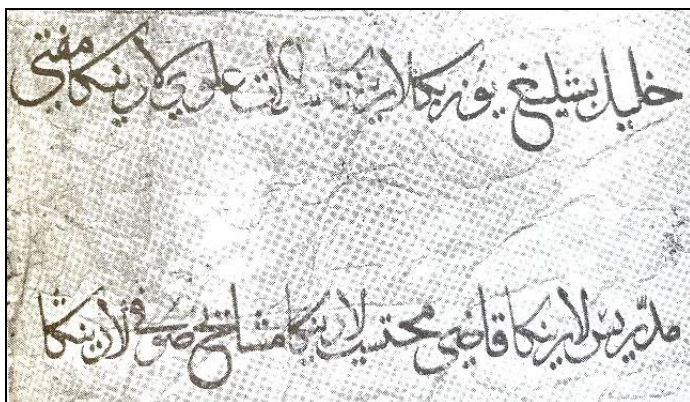 خليل بشليغ يوز بكالارينكا سادات علوي لارينكا مفتي
مدرّيس لارينكا قاضي محتسب لارينكا مشايخ صوفي لارينكا